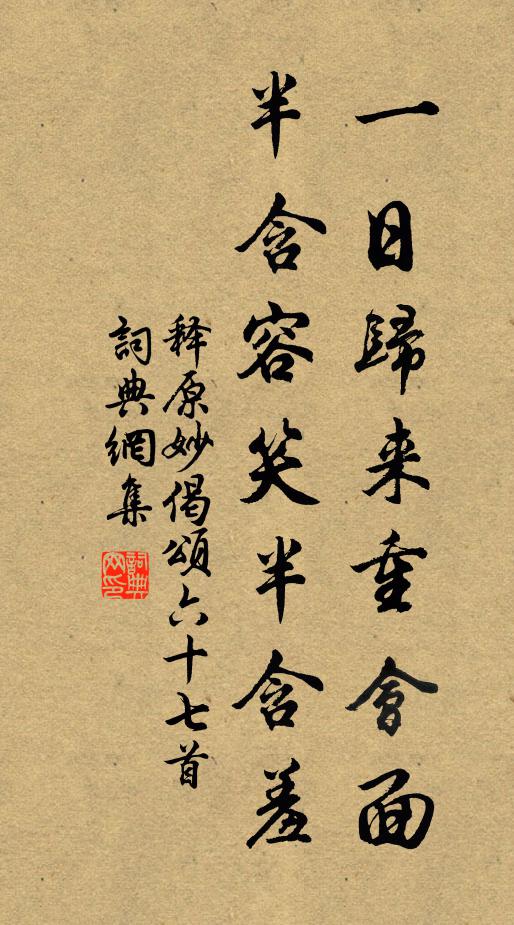 一日歸来重會面
半含容笑半含羞
释原妙偈頌六十七首
詞典網集
詞典网印